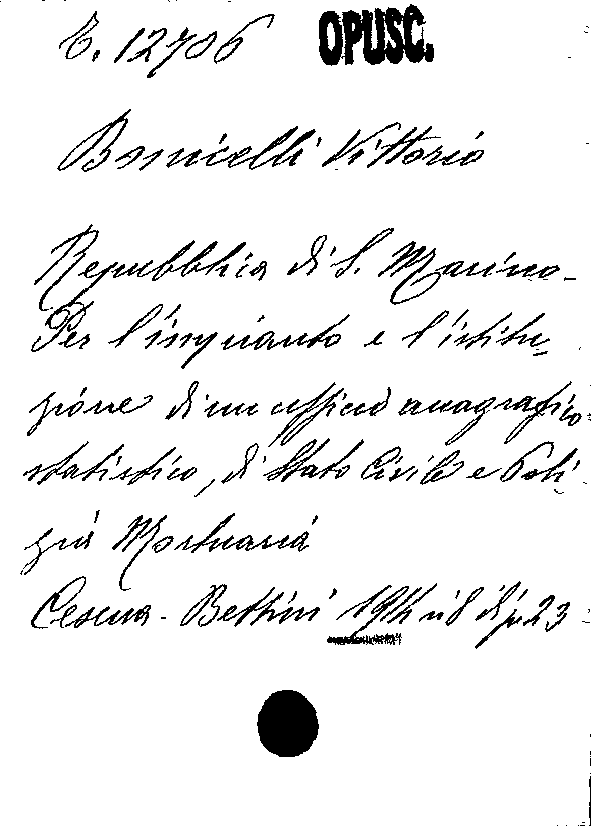 E. 12706 OPUSC.
Bonicelli Vittorio
Repubblica di S. Marino-
Per l'impianto e l'istitu-
zione di un ufficio anagrafico-
statistico, di Stato Civile e Poli-
zia Mortuaria
Cesena - Bettini 1914 in 8 di p. 23